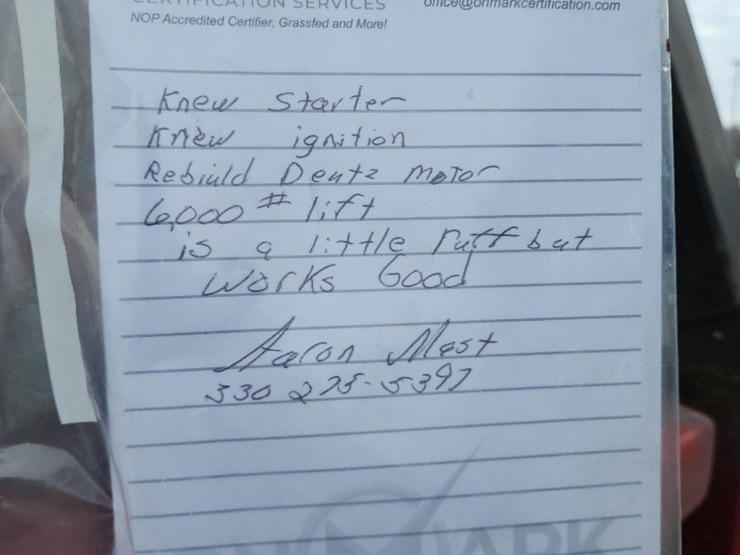 CERTIFICATION SERVICES
office@onmarkcertification.com
NOP Accredited Certifier, Grassfed and More!
Knew Starter
Knew ignition
Rebiuld Deutz motor
6,000 # lift
is a little Ruff but
works Good
Aaron Mast
330 275-5397
ONMARK